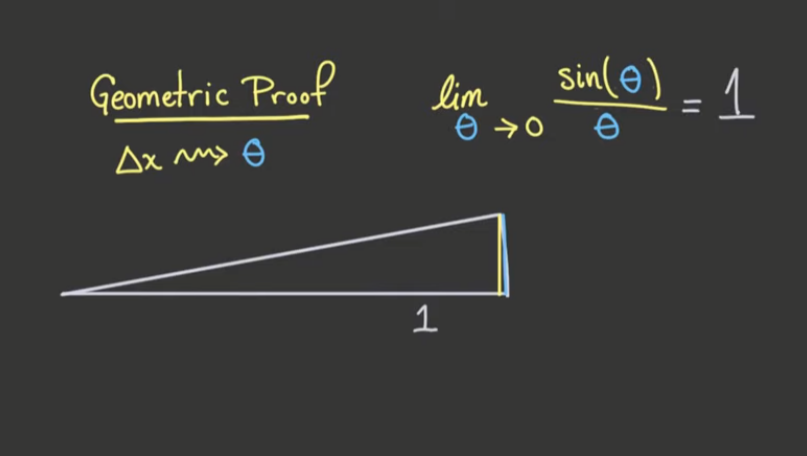 Geometric Proof
Δx ⇝ θ
lim θ→0 sin(θ)/θ = 1
1